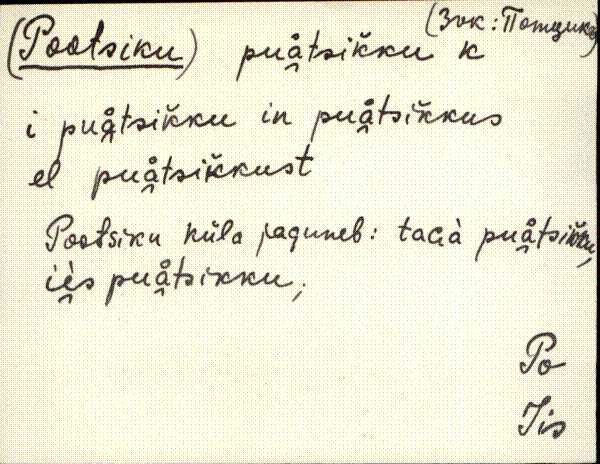 (Pootsiku) puå̯tsik̆ku k (Зок: Потцик
i puå̯tsik̆ku in puå̯tsik̆kus
el puå̯tsik̆kust
Pootsiku küla jaguneb: taGà puå̯tsik̆ku,
ìe̯s puå̯tsikku;
Po
Jis